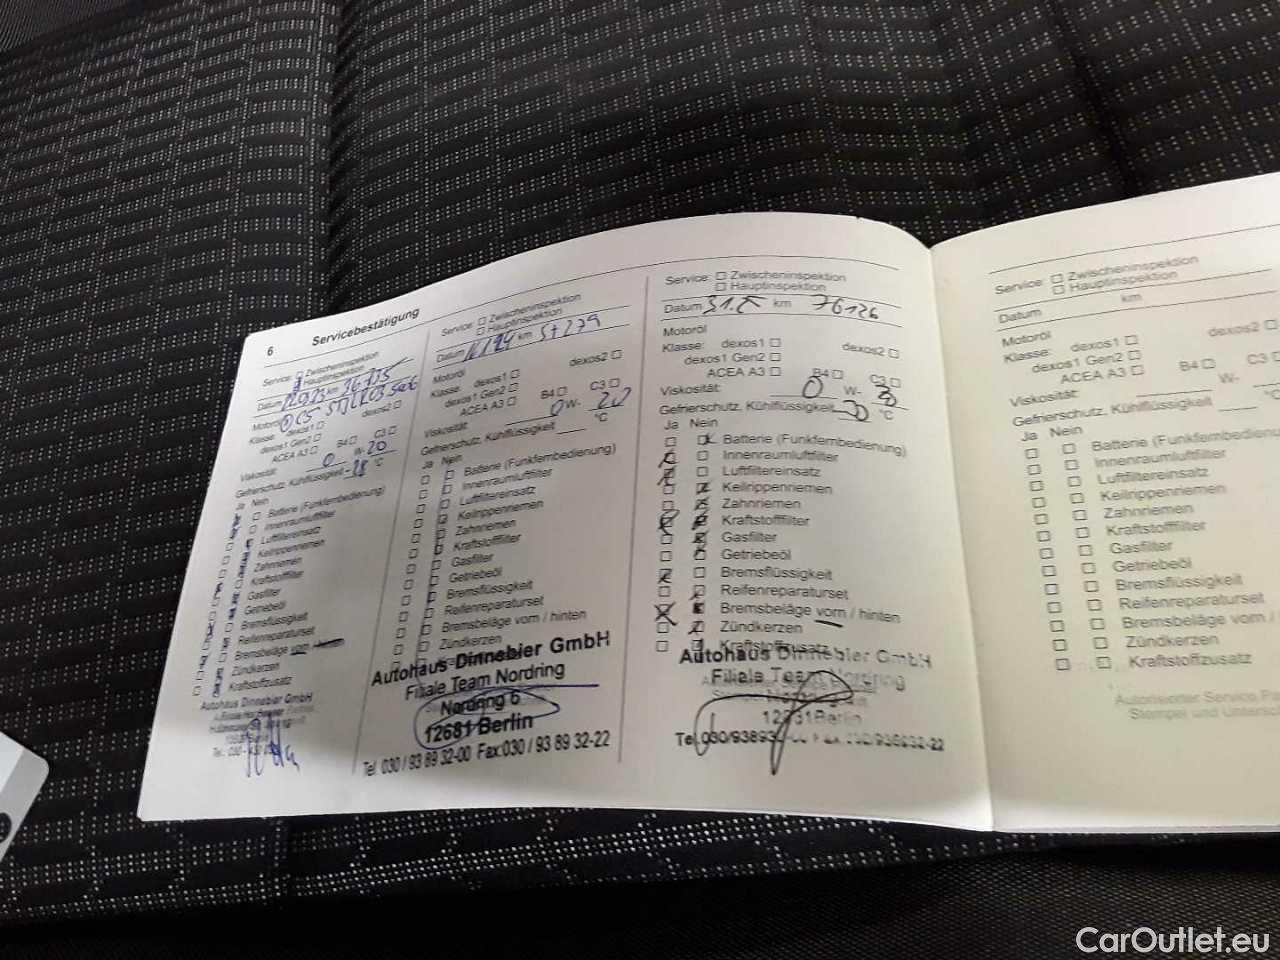 6 Servicebestätigung
Service: Zwischeninspektion
Hauptinspektion
Datum km
Motoröl
Klasse: dexos1 dexos2
dexos1 Gen2
ACEA A3 B4 C3
Viskosität: 0 W- 20
Gefrierschutz, Kühlflüssigkeit -28 °C
Ja Nein
Batterie (Funkfernbedienung)
Innenraumluftfilter
Luftfiltereinsatz
Keilrippenriemen
Zahnriemen
Kraftstofffilter
Gasfilter
Getriebeöl
Bremsflüssigkeit
Reifenreparaturset
Bremsbeläge vorn / hinten
Zündkerzen
Kraftstoffzusatz
Autohaus Dinnebier GmbH
Service: Zwischeninspektion
Hauptinspektion
Datum km 57279
Motoröl
Klasse: dexos1 dexos2
dexos1 Gen2
ACEA A3 B4 C3
Viskosität: 0 W- 20
Gefrierschutz, Kühlflüssigkeit °C
Ja Nein
Batterie (Funkfernbedienung)
Innenraumluftfilter
Luftfiltereinsatz
Keilrippenriemen
Zahnriemen
Kraftstofffilter
Gasfilter
Getriebeöl
Bremsflüssigkeit
Reifenreparaturset
Bremsbeläge vorn / hinten
Zündkerzen
Autohaus Dinnebier GmbH
Filiale Team Nordring
Nordring 6
12681 Berlin
Tel. 030 / 93 89 32-00 Fax: 030 / 93 89 32-22
Service: Zwischeninspektion
Hauptinspektion
Datum km 76126
Motoröl
Klasse: dexos1 dexos2
dexos1 Gen2
ACEA A3 B4 C3
Viskosität: 0 W-
Gefrierschutz, Kühlflüssigkeit 30 °C
Ja Nein
Batterie (Funkfernbedienung)
Innenraumluftfilter
Luftfiltereinsatz
Keilrippenriemen
Zahnriemen
Kraftstofffilter
Gasfilter
Getriebeöl
Bremsflüssigkeit
Reifenreparaturset
Bremsbeläge vorn / hinten
Zündkerzen
Kraftstoffzusatz
Autohaus Dinnebier GmbH
Filiale Team Nordring
Berlin
Service: Zwischeninspektion
Hauptinspektion
Datum km
Motoröl
Klasse: dexos1 dexos2
dexos1 Gen2
ACEA A3 B4 C3
Viskosität: W-
Gefrierschutz, Kühlflüssigkeit °C
Ja Nein
Batterie (Funkfernbedienung)
Innenraumluftfilter
Luftfiltereinsatz
Keilrippenriemen
Zahnriemen
Kraftstofffilter
Gasfilter
Getriebeöl
Bremsflüssigkeit
Reifenreparaturset
Bremsbeläge vorn /
Zündkerzen
Kraftstoffzusatz
Autorisierter Service
Stempel und
CarOutlet.eu